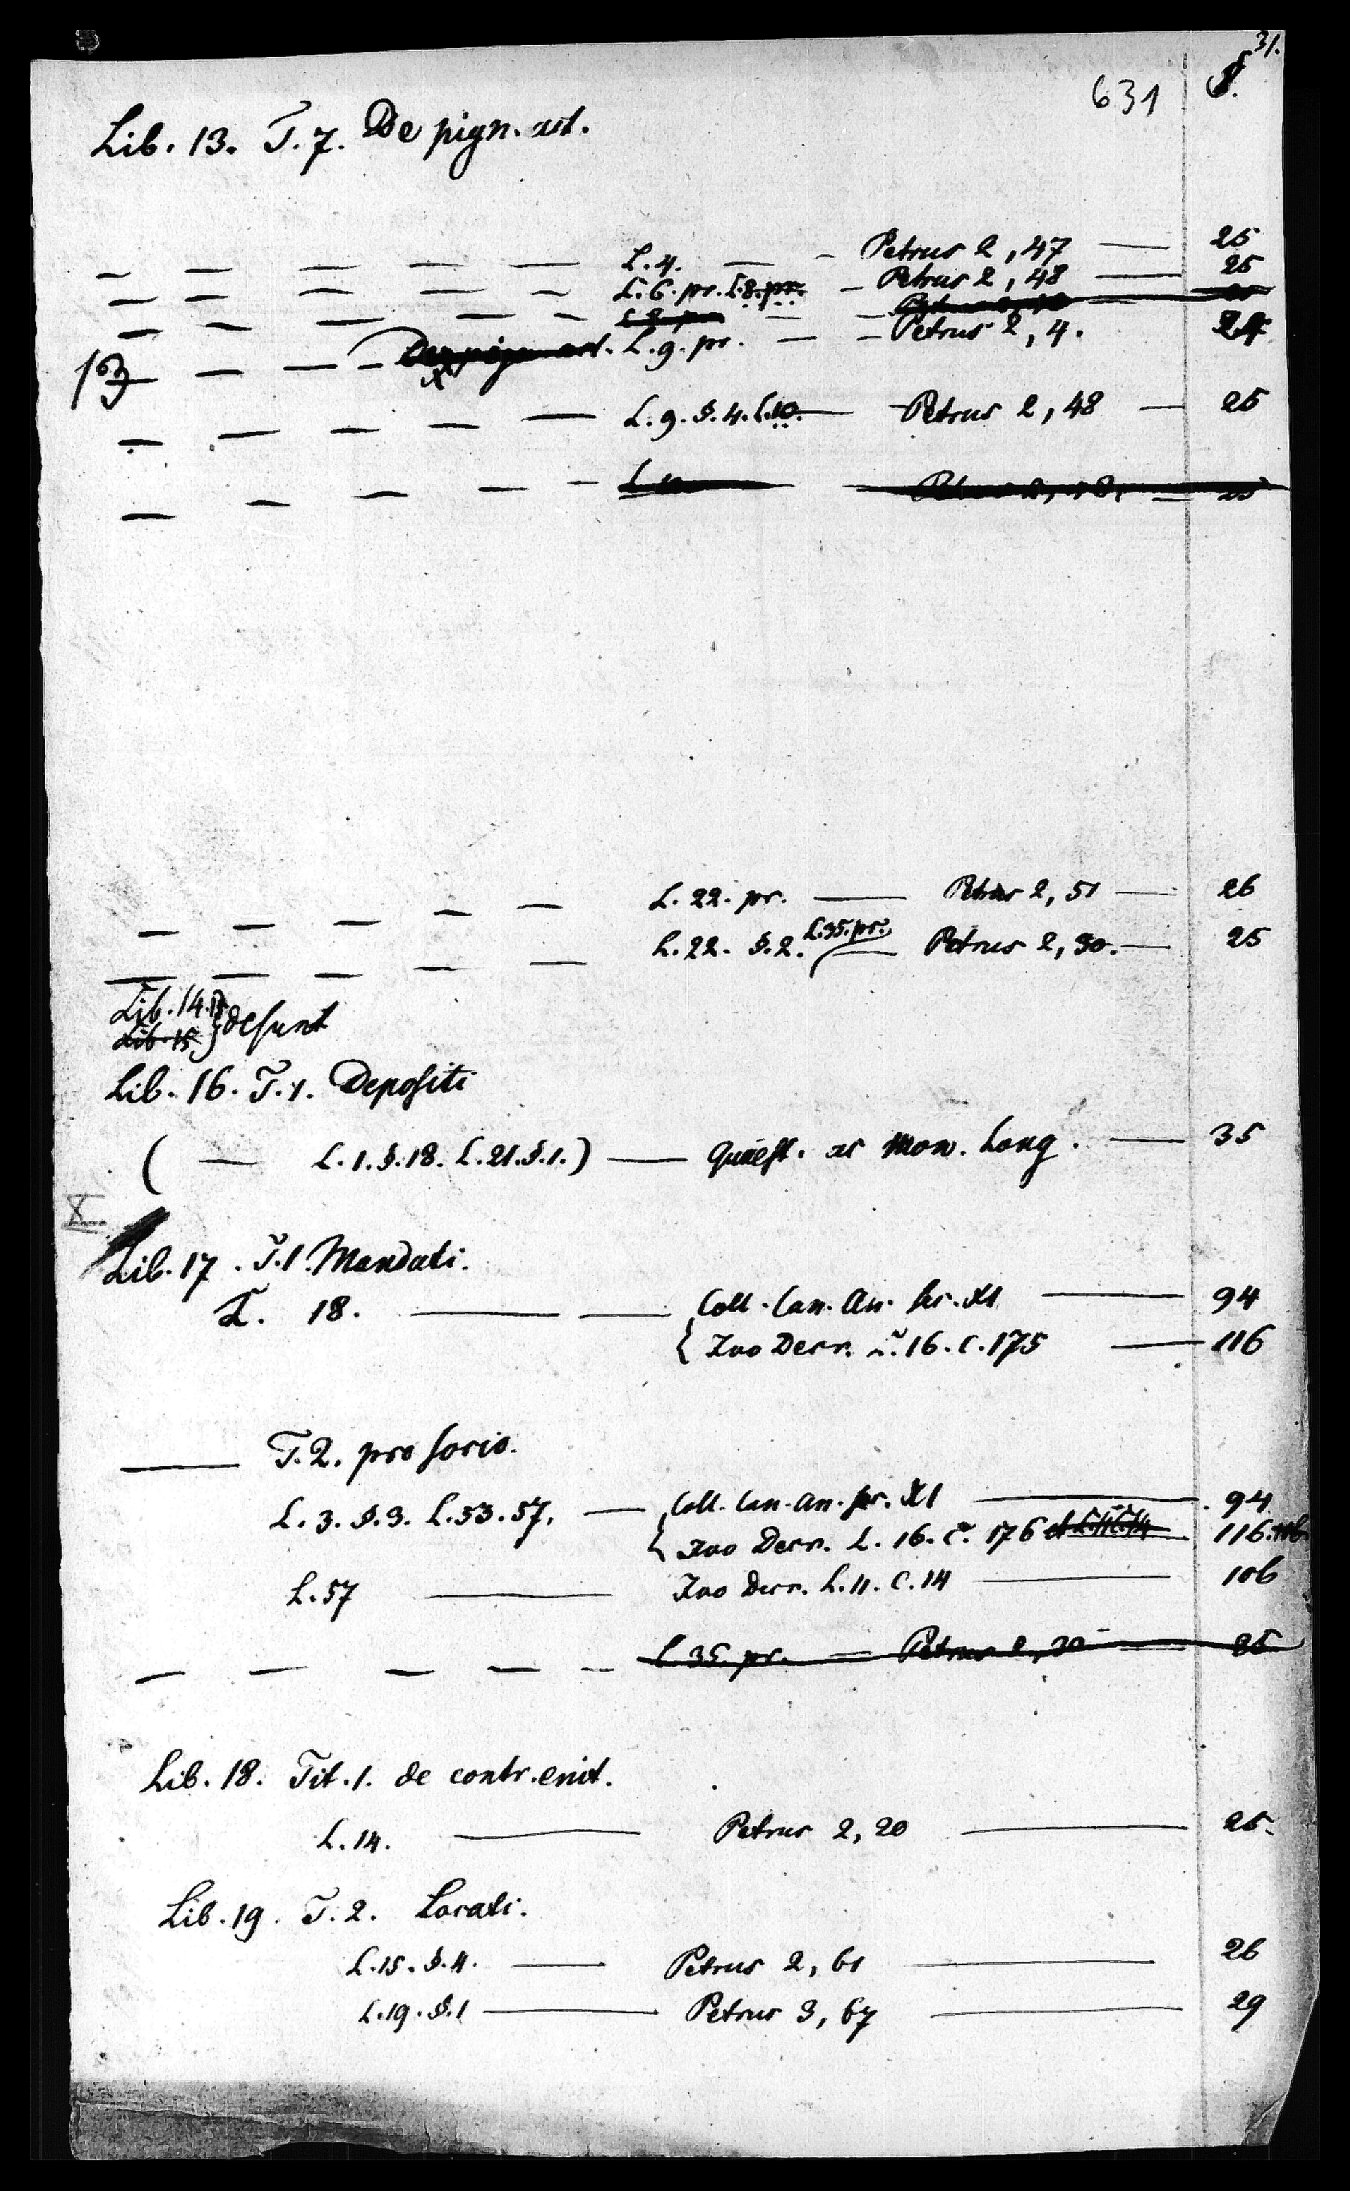 31.
631 §.
Lib. 13. T. 7. De pign. act.
— — — — — L. 4. — - Petrus 2, 47 — 25
— — — — — L. 6. pr. L. 8. pr. - Petrus 2, 48 — 25
— — — — — L. 8. pr. — - Petrus 2, 48 — 25
13 — — — De pign. act. L. 9. pr. — - Petrus 2, 4. 24
— — — — — L. 9. §. 4. L. 10. — Petrus 2, 48 — 25
— — — — - L. 10 — Petrus 2, 48, — 25
— — — — — L. 22. pr. — Petrus 2, 51 — 26
— — — — — L. 22. §. 2. L. 35. pr. — Petrus 2, 30. — 25
Lib. 14. 15 } desunt
Lib. 15
Lib. 16. T. 1. Depositi
( — L. 1. §. 18. L. 21. §. 1.) — Quaest. ac Mon. Long. — 35
X.
Lib. 17. T. 1 Mandati.
L. 18. — — { Coll. Can. An. sec. XI — 94
Ivo Decr. L. 16. C. 175 — 116
— T. 2. pro socio.
L. 3. §. 3. L. 53. 57. — { Coll. Can. An. sec. XI — 94
Ivo Decr. L. 16. C. 176 et L. 11. C. 14 116. 106.
L. 57 — Ivo Decr. L. 11. C. 14 — 106
— — — — - L. 35. pr. — Petrus 2, 30 — 25
Lib. 18. Tit. 1. de contr. emt.
L. 14. — Petrus 2, 20 — 25.
Lib. 19. T. 2. Locati.
L. 15. §. 4. — Petrus 2, 61 — 26
L. 19. §. 1 — Petrus 3, 67 — 29